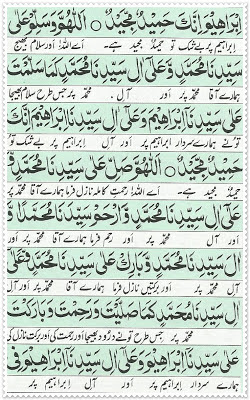 اِبْرَاهِيْمَ اِنَّكَ حَمِيْدٌ مَّجِيْدٌ ○ اَللّٰهُمَّ وَسَلِّمْ عَلٰى
ابراہیم پر بے شک تو حمید مجید ہے۔ اے اللہ! اور سلام بھیج
سَيِّدِنَا مُحَمَّدٍ وَّعَلٰى اٰلِ سَيِّدِنَا مُحَمَّدٍ كَمَا سَلَّمْتَ
محمد پر اور آل محمد پر جس طرح سلام بھیجا
عَلٰى سَيِّدِنَا اِبْرَاهِيْمَ وَعَلٰى اٰلِ سَيِّدِنَا اِبْرَاهِيْمَ اِنَّكَ
تو نے ہمارے سردار ابراہیم پر اور آل ابراہیم پر بے شک تو
حَمِيْدٌ مَّجِيْدٌ ○ اَللّٰهُمَّ صَلِّ عَلٰى سَيِّدِنَا مُحَمَّدٍ وَّ
حمید مجید ہے۔ اے اللہ! رحمت کاملہ نازل فرما ہمارے آقا محمد پر
عَلٰى اٰلِ سَيِّدِنَا مُحَمَّدٍ وَّارْحَمْ سَيِّدِنَا مُحَمَّدًا وَّ
اور آل محمد پر اور رحم فرما ہمارے آقا محمد پر اور
اٰلِ سَيِّدِنَا مُحَمَّدٍ وَّبَارِكْ عَلٰى سَيِّدِنَا مُحَمَّدٍ وَّعَلٰى
آل محمد پر اور برکتیں نازل فرما ہمارے آقا محمد پر اور آل
اٰلِ سَيِّدِنَا مُحَمَّدٍ كَمَا صَلَّيْتَ وَرَحِمْتَ وَبَارَكْتَ
محمد پر جس طرح تو نے درود بھیجا اور رحمت کی اور برکت نازل کی
عَلٰى سَيِّدِنَا اِبْرَاهِيْمَ وَعَلٰى اٰلِ سَيِّدِنَا اِبْرَاهِيْمَ فِى
ہمارے سردار ابراہیم پر اور آل ابراہیم پر